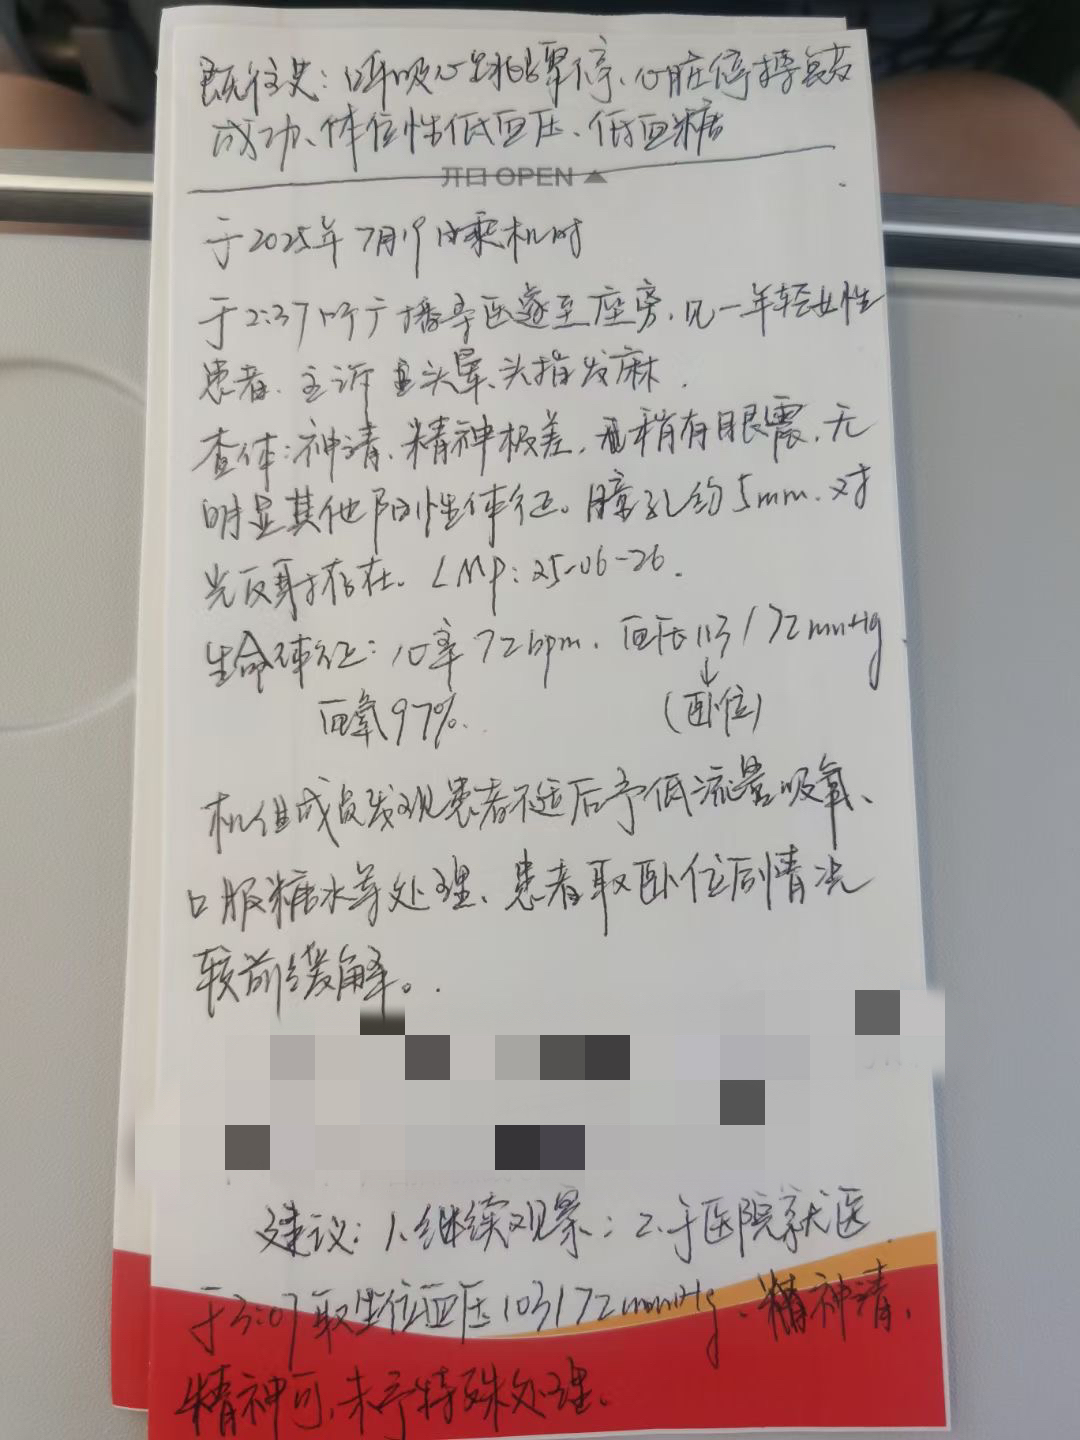 既往史：呼吸心跳骤停、心脏停搏复苏
成功、体位性低血压、低血糖
开口 OPEN
于2025年7月19日乘机时
于2:37听广播寻医遂至座旁，见一年轻女性
患者，主诉头晕、头指发麻．
查体：神清，精神极差，稍有眼震，无
明显其他阳性体征。瞳孔约5mm．对
光反射存在．LMP：25-06-26．
生命体征：心率72bpm．血压113/72mmHg
血氧97%． (卧位)
机组成员发现患者不适后予低流量吸氧、
口服糖水等处理、患者取卧位后情况
较前缓解。
建议：1.继续观察；2.于医院就医．
于3:07取坐位血压103/72mmHg、神清，
精神可，未予特殊处理．